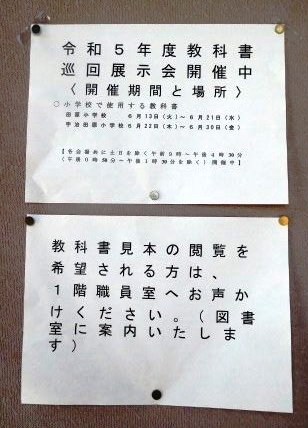 令和５年度教科書
巡回展示会開催中
〈開催期間と場所〉
○小学校で使用する教科書
田原小学校　６月１３日（火）～６月２１日（水）
宇治田原小学校６月２２日（木）～６月３０日（金）
【各会場共に土日を除く午前９時～午後４時３０分
（午後０時５０分～午後１時３０分を除く）開催中】
教科書見本の閲覧を
希望される方は、
１階職員室へお声か
けください。（図書
室に案内いたしま
す）